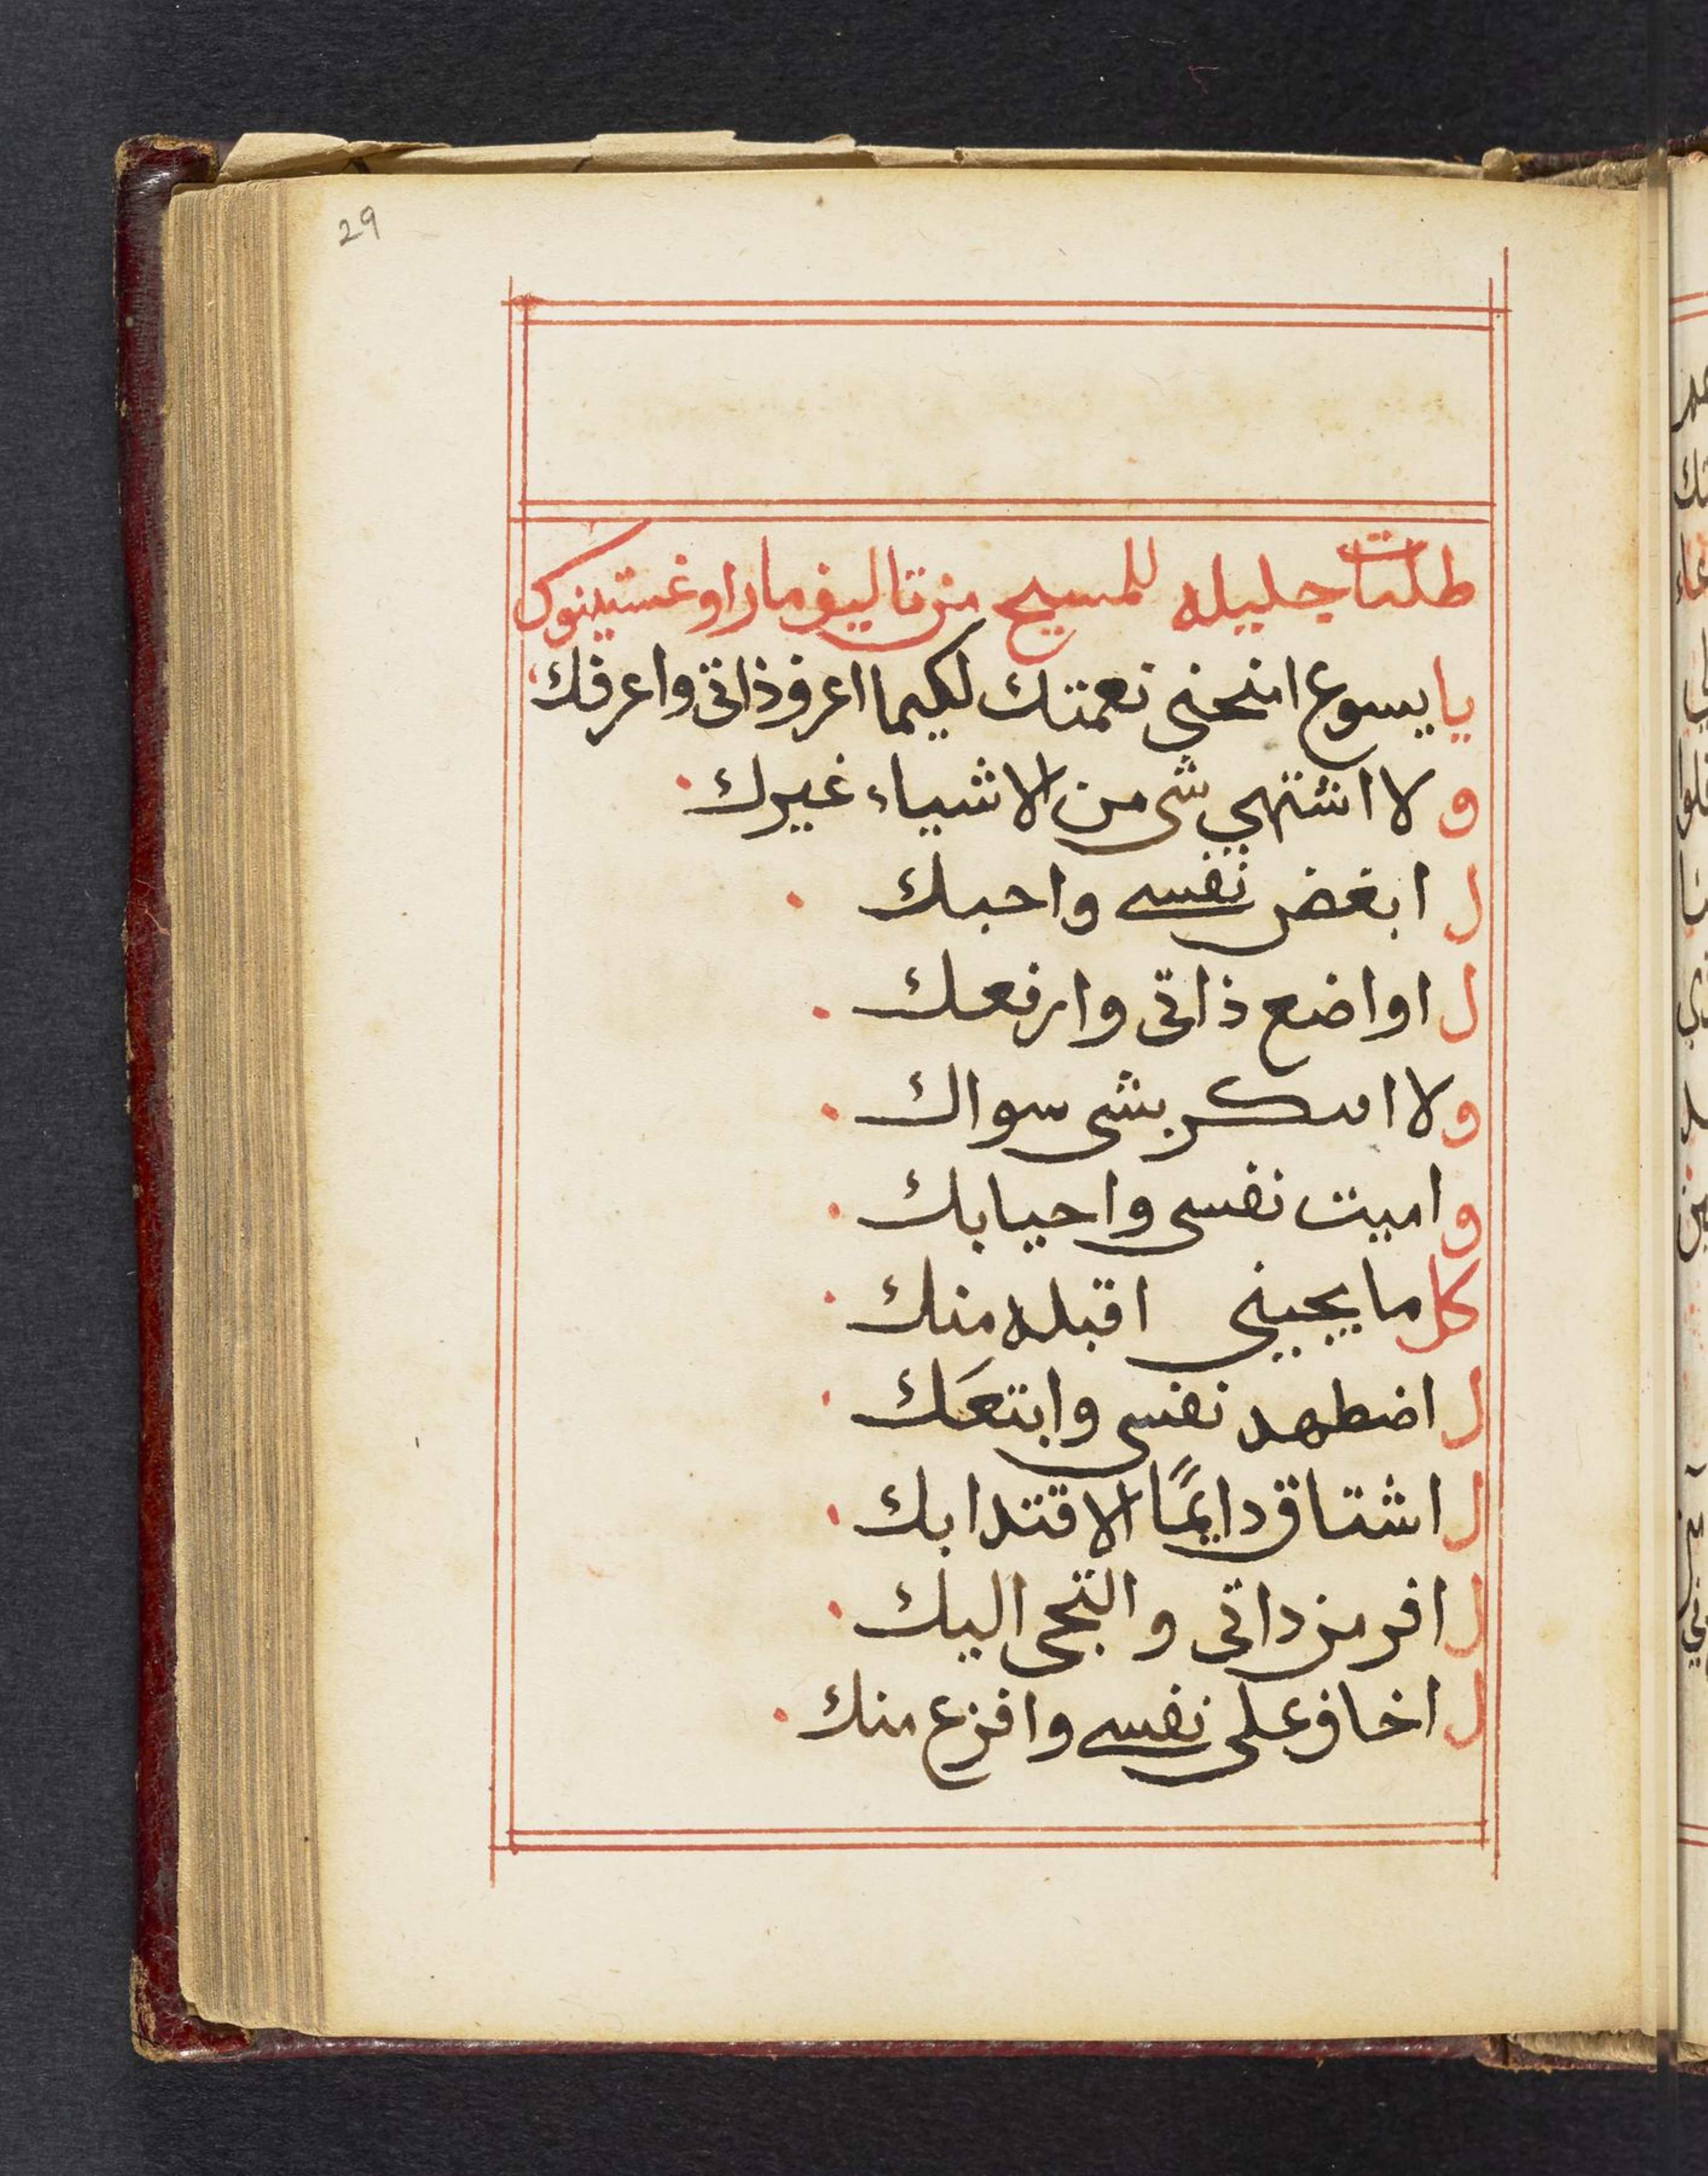 29
طلبات جليله للمسيح من تاليف مار اوغستينوس
يا يسوع امنحني نعمتك لكيما اعرف ذاتي واعرفك
ولا اشتهي شي من الاشياء غيرك
لابغض نفسي واحبك
لاواضع ذاتي وارفعك
ولا افتكر بشي سواك
واميت نفسي واحيا بك
كل ما يجيني اقبله منك
لاضطهد نفسي وابتعك
لاشتاق دايمًا الاقتدا بك
لافر من داتي والتجي اليك
لاخاف على نفسي وافزع منك